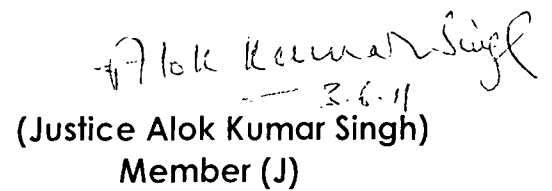 Alok Kumar Singh
3.6.11
(Justice Alok Kumar Singh)
Member (J)